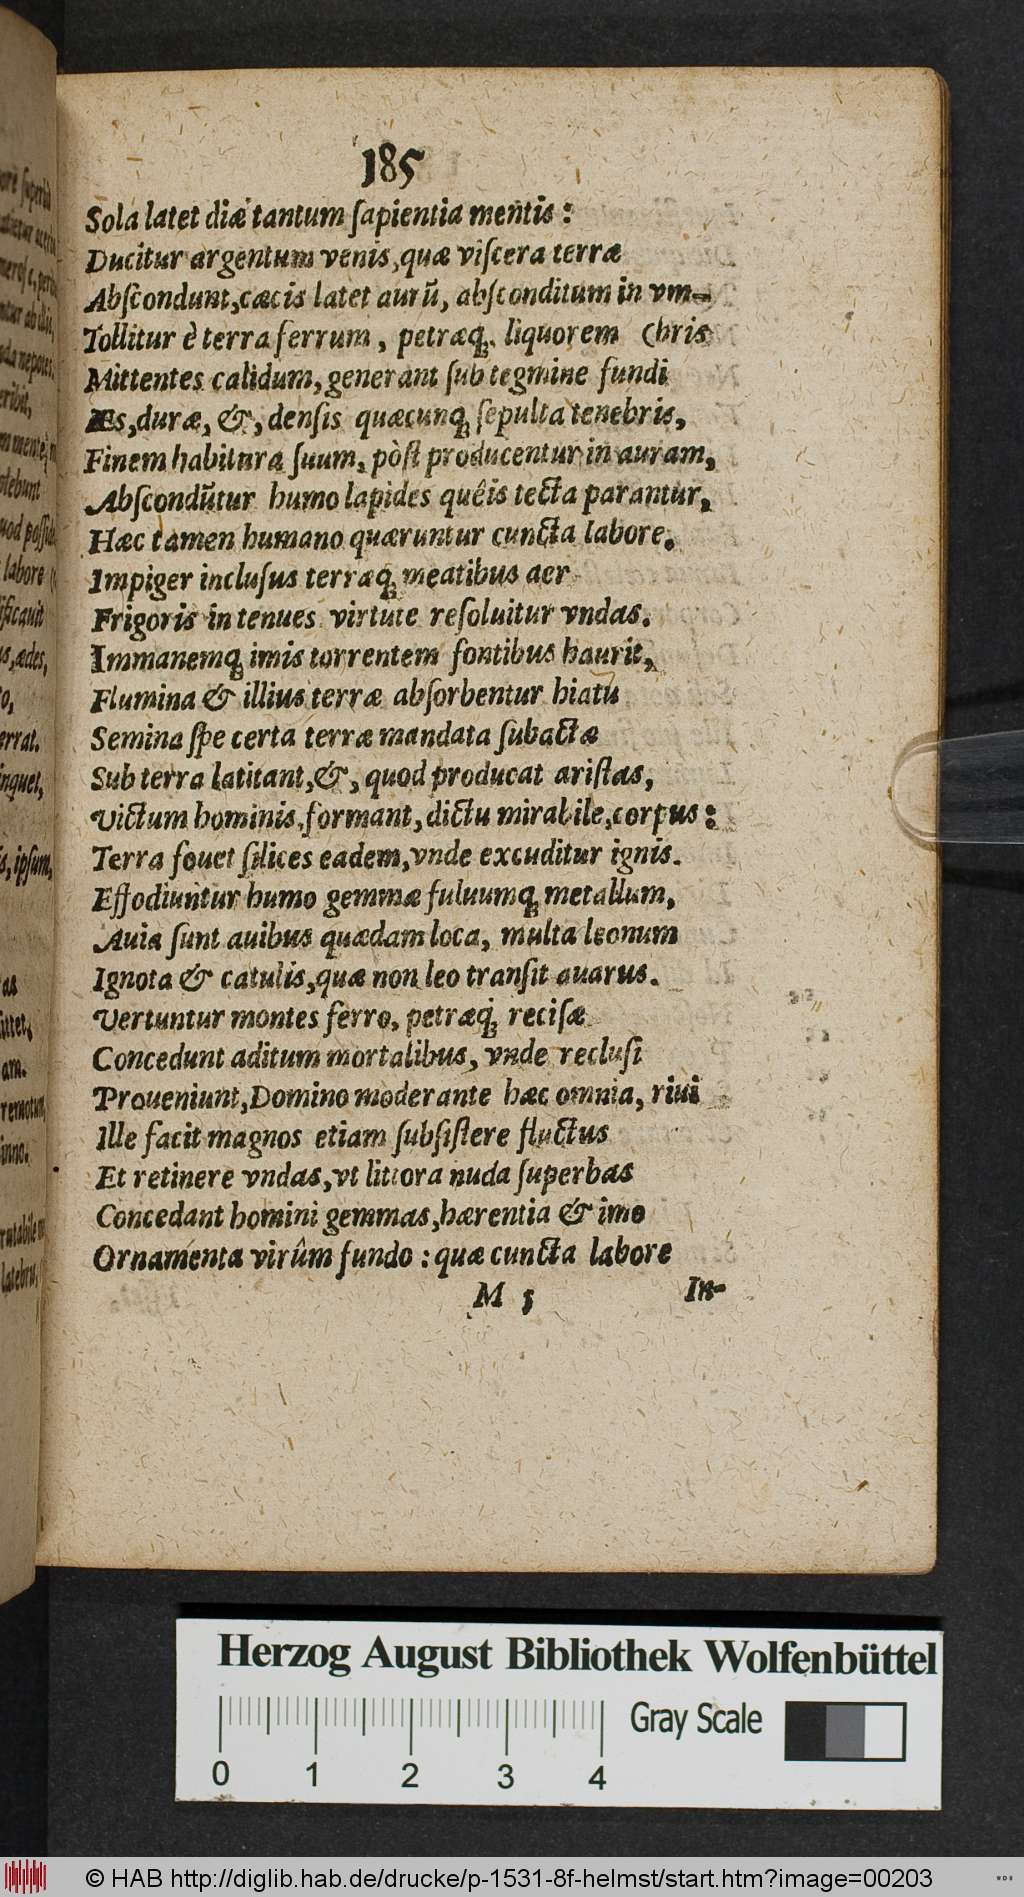 185
Sola latet diæ tantum ſapientia mentis:
Ducitur argentum venis, quæ viſcera terræ
Abſcondunt, cæcis latet aurū, abſconditum in vm-
Tollitur è terra ferrum, petræq́; liquorem (bris
Mittentes calidum, generant ſub tegmine fundi
Æs, duræ, &, denſis quæcunq; ſepulta tenebris,
Finem habitura ſuum, pòſt producentur in auram,
Abſcondūtur humo lapides quêis tecta parantur,
Hæc tamen humano quæruntur cuncta labore.
Impiger incluſus terræq; meatibus aer
Frigoris in tenues virtute reſoluitur vndas.
Immanemq; imis torrentem fontibus haurit,
Flumina & illius terræ abſorbentur hiatu
Semina ſpe certa terræ mandata ſubactæ
Sub terra latitant, &, quod producat ariſtas,
Victum hominis, formant, dictu mirabile, corpus:
Terra fouet ſilices eadem, vnde excuditur ignis.
Effodiuntur humo gemmæ fuluumq; metallum,
Auia ſunt auibus quædam loca, multa leonum
Ignota & catulis, quæ non leo tranſit auarus.
Vertuntur montes ferro, petræq́; reciſæ
Concedunt aditum mortalibus, vnde recluſi
Proueniunt, Domino moderante hæc omnia, riui
Ille facit magnos etiam ſubſiſtere fluctus
Et retinere vndas, vt littora nuda ſuperbas
Concedant homini gemmas, hærentia & imo
Ornamenta virûm fundo: quæ cuncta labore
M 5 In-
Herzog August Bibliothek Wolfenbüttel
Gray Scale
0 1 2 3 4
© HAB http://diglib.hab.de/drucke/p-1531-8f-helmst/start.htm?image=00203